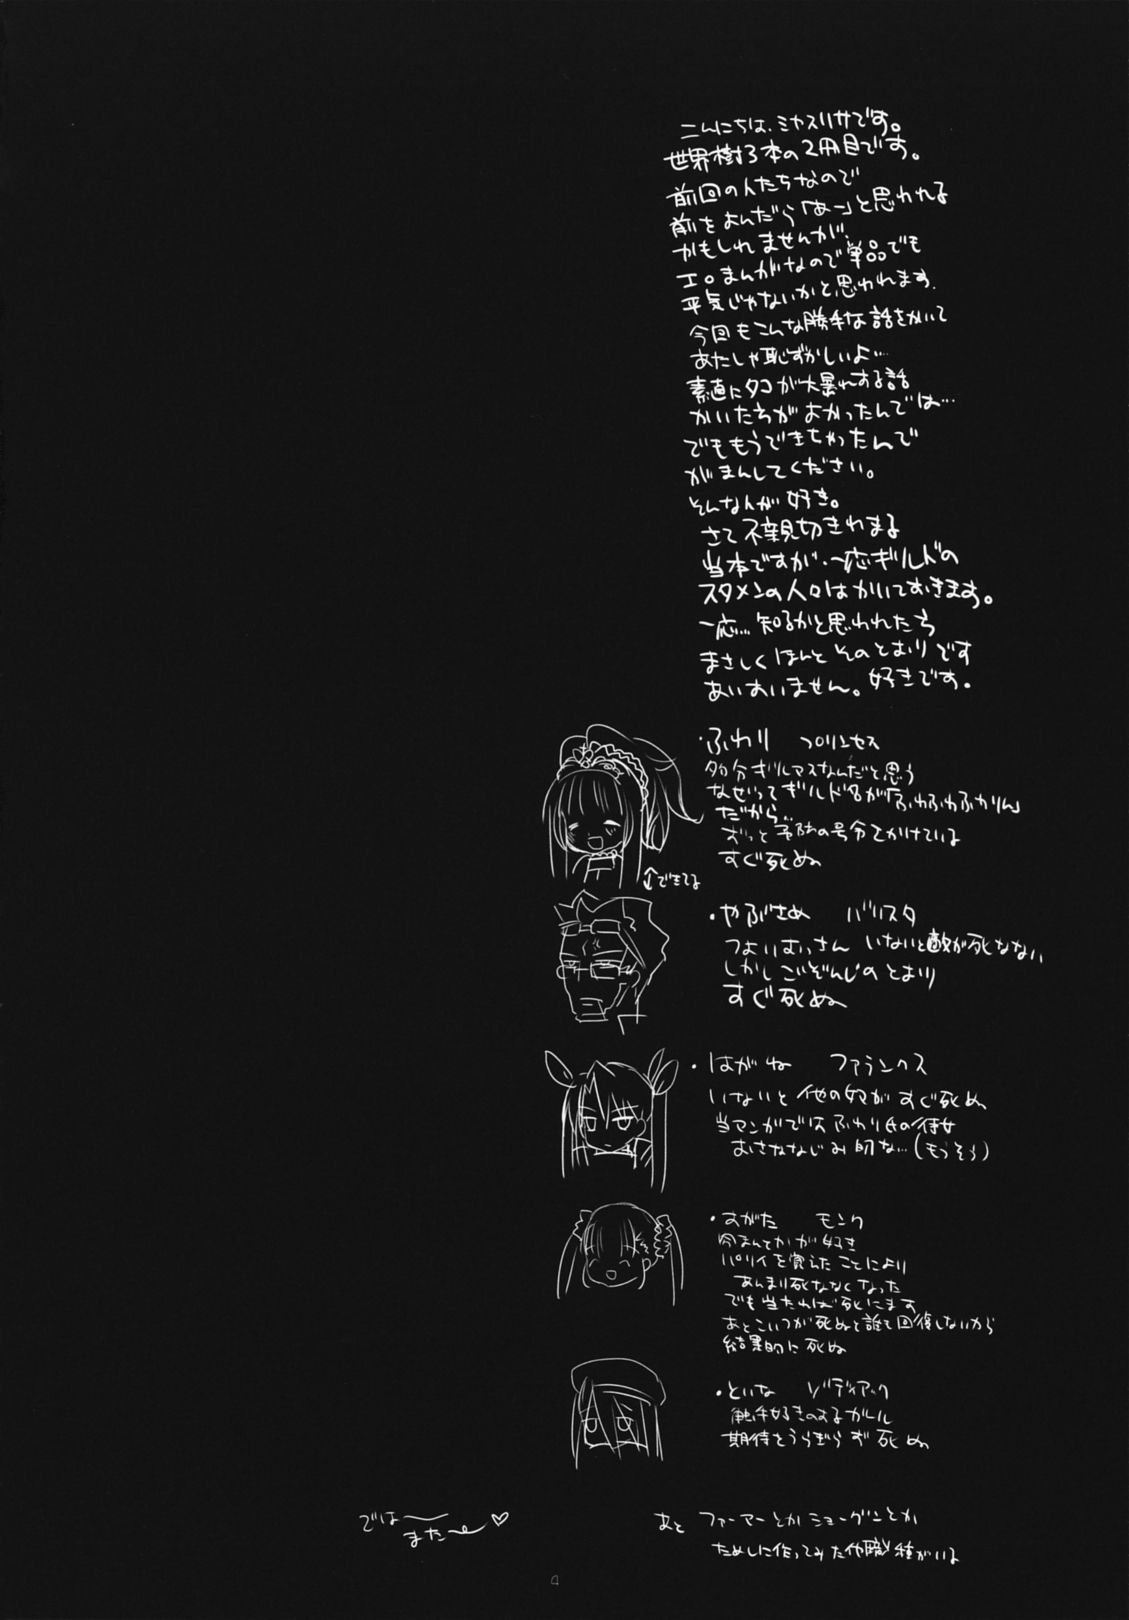 こんにちは、ミヤスリサです。
世界樹3本の2冊目です。
前回の人たちなので
前をよんだら「あー」と思われる
かもしれませんが、
エロまんがなので単品でも
平気じゃないかと思われます。
今回もこんな勝手な話をかいて
あたしゃ恥ずかしいよ…
素直にタコが大暴れする話
かいたらがよかったんでは…
でももうできちゃったんで
がまんしてください。
そんなんが好き。
さて不親切きわまる
当本ですが、一応ギルドの
スタメンの人らはかいておきます。
一応…知るかと思われたら
まさしくほんとそのとおりです
あいすいません。好きです。
・ふわり プリンセス
多分ギルマスなんだと思う
なぜってギルド名が「ふわふわふわりん」
だから…
ずっと予防の号令をかけている
すぐ死ぬ
↑できてる
・やぶさめ バリスタ
つよいおっさん いないと敵が死なない
しかしごぞんじのとおり
すぐ死ぬ
・はがね ファランクス
いないと他の奴がすぐ死ぬ
当マンガではふわり氏の侍女
おさななじみ的な…(もうそう)
・すがた モンク
肉まんとかが好き
パリィを覚えたことにより
あんまり死ななくなった
でも当たれば死にます
あとこいつが死ぬと誰も回復しないから
結果的に死ぬ
・といな ゾディアック
触手好きのするガール
期待をうらぎらず死ぬ
あと ファーマーとかショーグンとか
ためしに作ってみた他職種がいる
では
またー♡